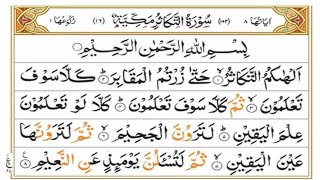 اٰيَاتُهَا ٨ (١٠٢) سُوْرَةُ التَّكَاثُرِ مَكِّيَّةٌ (١٦) رُكُوْعُهَا ١
بِسْمِ اللّٰهِ الرَّحْمٰنِ الرَّحِيْمِ
اَلْهٰىكُمُ التَّكَاثُرُ ۙ ١ حَتّٰى زُرْتُمُ الْمَقَابِرَ ؕ ٢ كَلَّا سَوْفَ
تَعْلَمُوْنَ ۙ ٣ ثُمَّ كَلَّا سَوْفَ تَعْلَمُوْنَ ؕ ٤ كَلَّا لَوْ تَعْلَمُوْنَ
عِلْمَ الْيَقِيْنِ ؕ ٥ لَتَرَوُنَّ الْجَحِيْمَ ۙ ٦ ثُمَّ لَتَرَوُنَّهَا
عَيْنَ الْيَقِيْنِ ۙ ٧ ثُمَّ لَتُسْـَٔلُنَّ يَوْمَئِذٍ عَنِ النَّعِيْمِ ٨